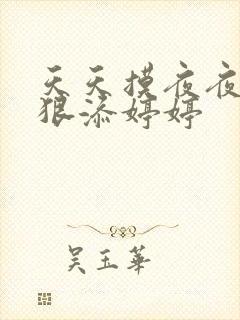 天天摸夜夜
狠添婷婷
吴玉華